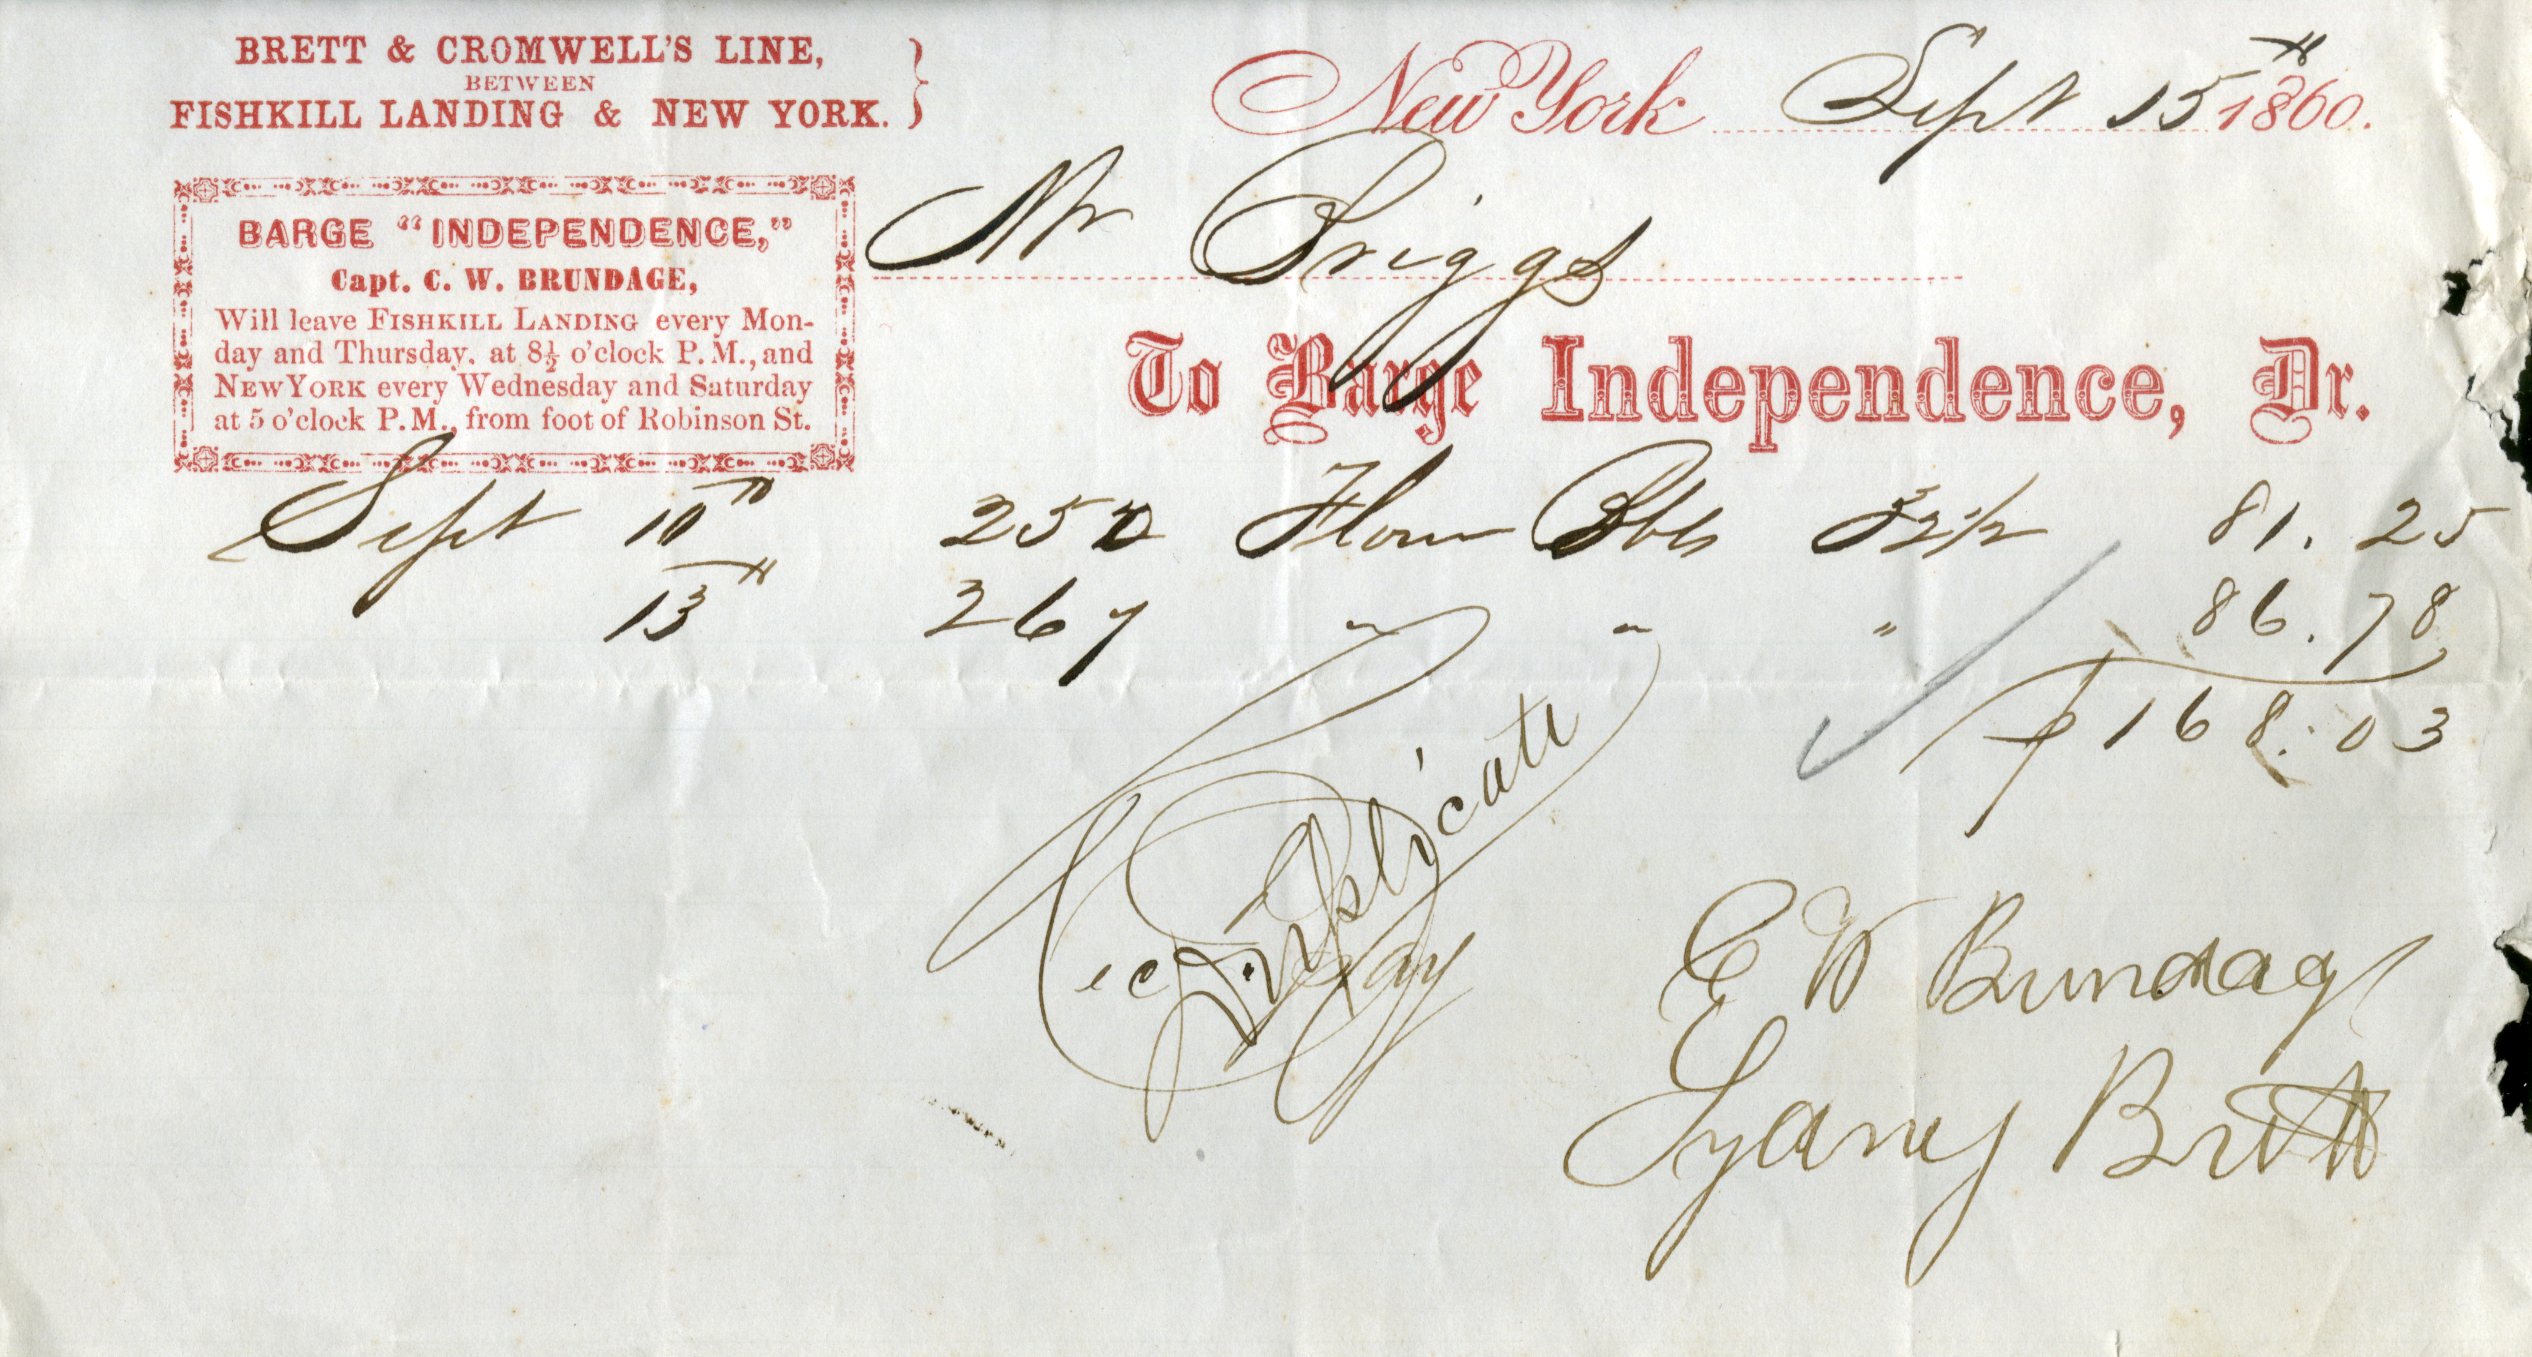 BRETT & CROMWELL'S LINE,
BETWEEN
FISHKILL LANDING & NEW YORK.
New York Sept 15th 1860.
Mr Briggs
BARGE "INDEPENDENCE,"
Capt. C. W. BRUNDAGE,
Will leave FISHKILL LANDING every Mon-
day and Thursday, at 8½ o'clock P. M., and
NEW YORK every Wednesday and Saturday
at 5 o'clock P. M., from foot of Robinson St.
To Barge Independence, Dr.
Sept 10th 250 Flour Bbls 32½ 81.25
13th 267 " " " 86.78
$168.03
Duplicate
Pay
E W Bundag
Sydney Brett